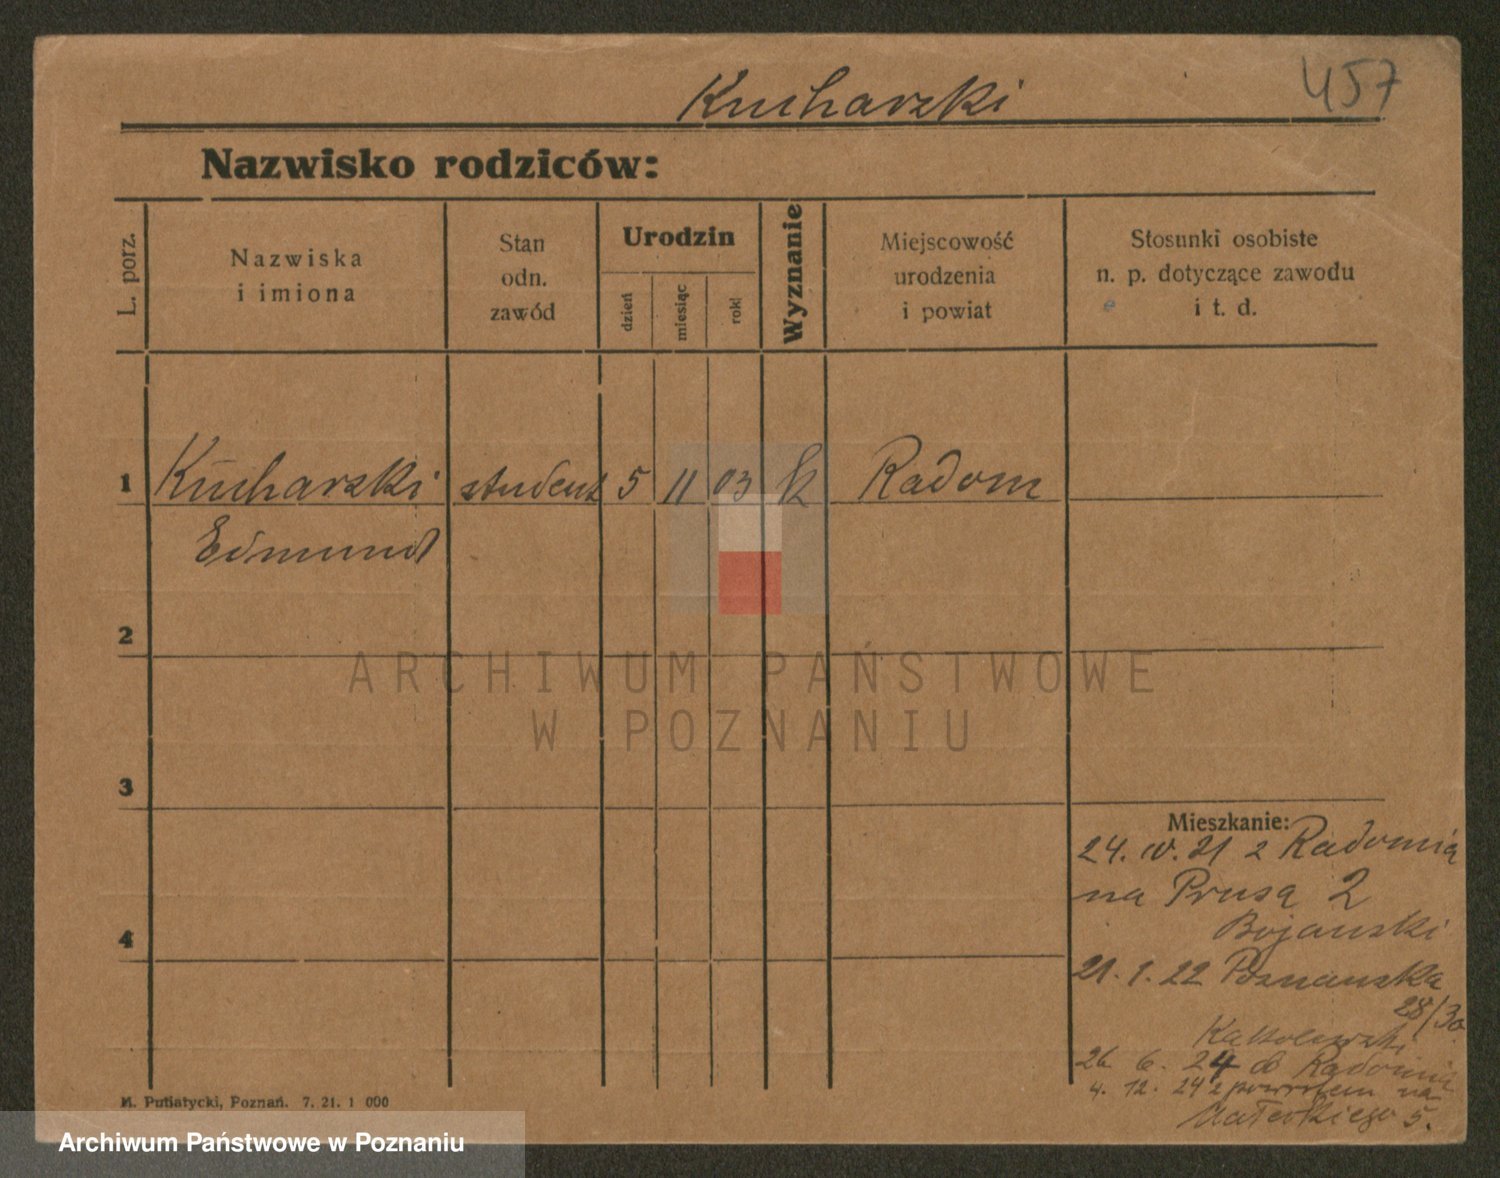 457
Kucharski
Nazwisko rodziców:
L. porz.
Nazwiska
i imiona
Stan
odn.
zawód
Urodzin
dzień
miesiąc
rok
Wyznanie
Miejscowość
urodzenia
i powiat
Stosunki osobiste
n. p. dotyczące zawodu
i t. d.
1 Kucharski student 5 11 03 k Radom
Edmund
2
3
4
Mieszkanie:
24. IV. 21 z Radomia
na Prusa 2
Bojanski
21. 1. 22 Poznanska
28/30
26. 6. 24 do Radomia
4. 12. 24 z powrotem na
Matejkiego 5.
M. Putiatycki, Poznań. 7. 21. 1 000
ARCHIWUM PAŃSTWOWE
W POZNANIU
Archiwum Państwowe w Poznaniu